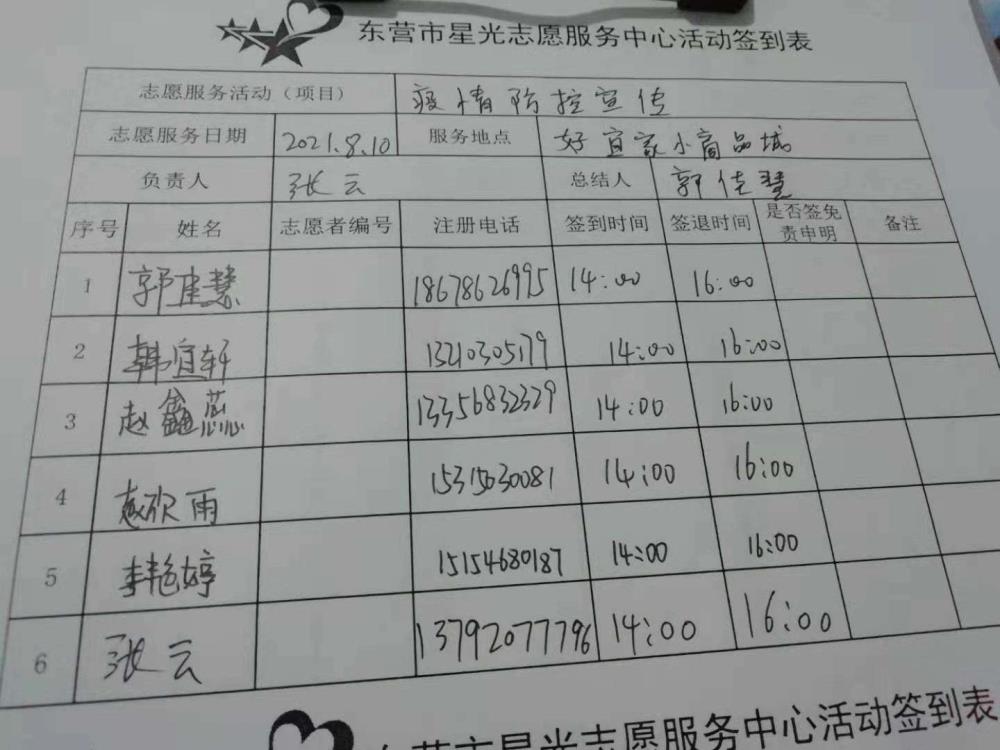 东营市星光志愿服务中心活动签到表
志愿服务活动（项目） 疫情防控宣传
志愿服务日期 2021.8.10 服务地点 好宜家小商品城
负责人 张云 总结人 郭佳慧
序号 姓名 志愿者编号 注册电话 签到时间 签退时间 是否签免责申明 备注
1 郭佳慧 18678626995 14:00 16:00
2 韩宜轩 13210305179 14:00 16:00
3 赵鑫蕊 13356832329 14:00 16:00
4 赵欣雨 15315630081 14:00 16:00
5 李艳婷 15154680187 14:00 16:00
6 张云 13792077796 14:00 16:00
东营市星光志愿服务中心活动签到表